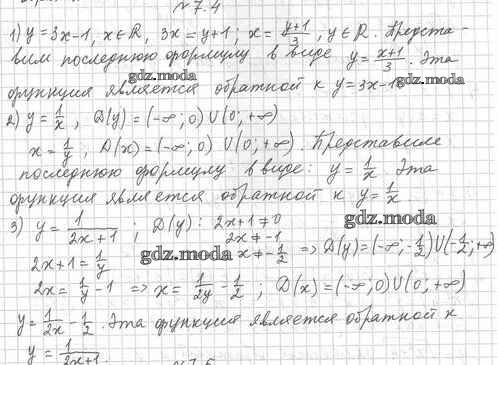 №7.4
1) y=3x-1, x∈R, 3x=y+1; x=\frac{y+1}{3}, y∈R. Предста-
вим последнюю формулу в виде y=\frac{x+1}{3}. Эта
gdz.moda
функция является обратной к y=3x-1
gdz.moda
2) y=\frac{1}{x}, D(y)=(-∞;0)U(0;+∞)
x=\frac{1}{y}; D(x)=(-∞;0)U(0;+∞). Представиле
последнюю формулу в виде: y=\frac{1}{x}. Эта
функция является обратной к y=\frac{1}{x}
gdz.moda
3) y=\frac{1}{2x+1}; D(y): 2x+1≠0
2x≠-1
gdz.moda
x≠-\frac{1}{2} => D(y)=(-∞;-\frac{1}{2})U(-\frac{1}{2};+∞)
2x+1=\frac{1}{y}
2x=\frac{1}{y}-1 => x=\frac{1}{2y}-\frac{1}{2}; D(x)=(-∞;0)U(0;+∞)
y=\frac{1}{2x}-\frac{1}{2}. Эта функция является обратной к
y=\frac{1}{2x+1}.